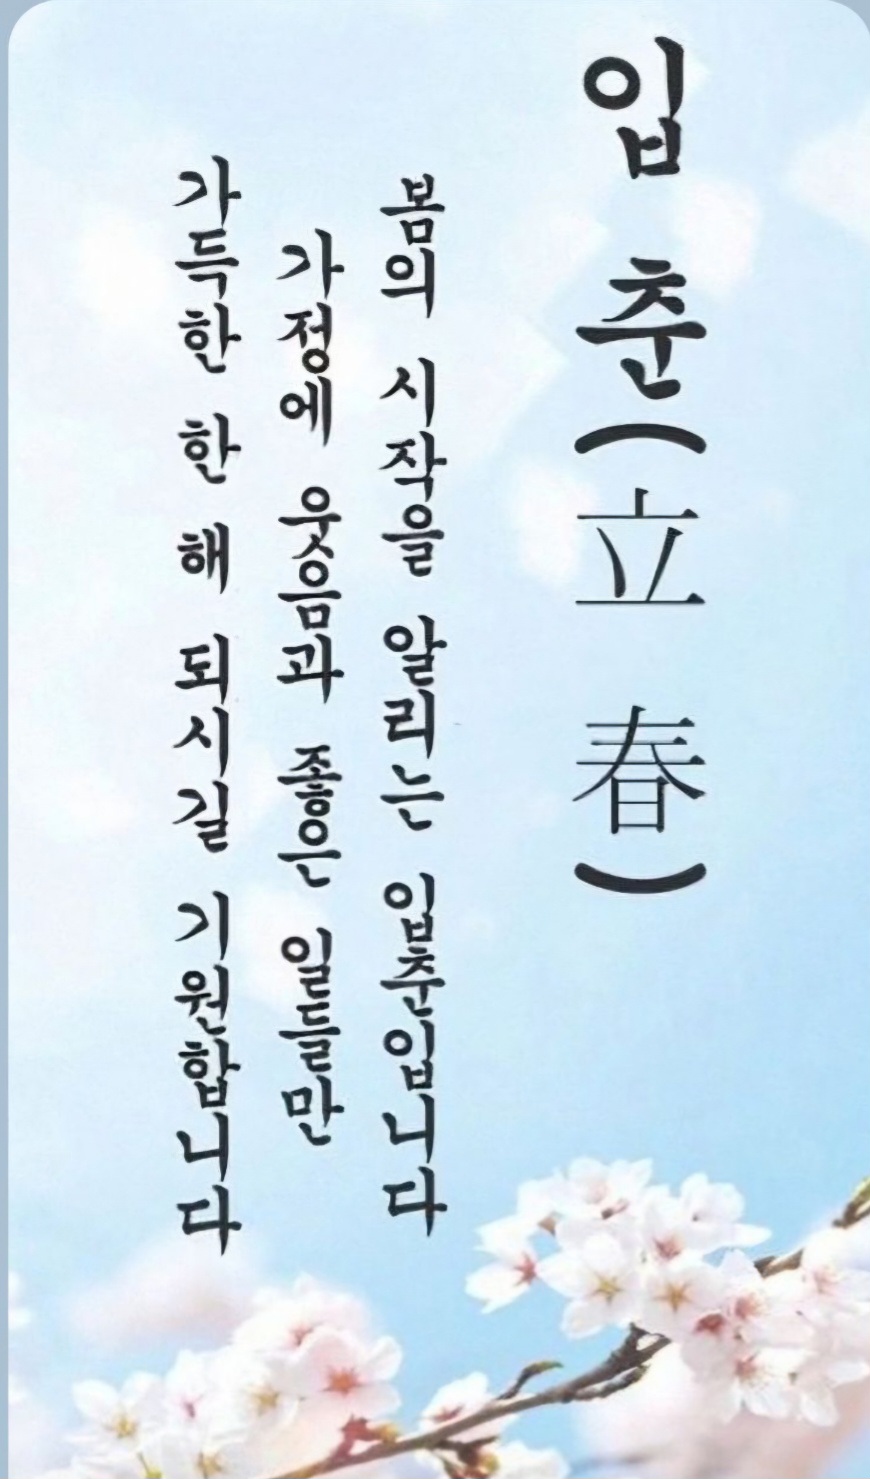 입 춘(立 春)
봄의 시작을 알리는 입춘입니다
가정에 웃음과 좋은 일들만
가득한 한 해 되시길 기원합니다